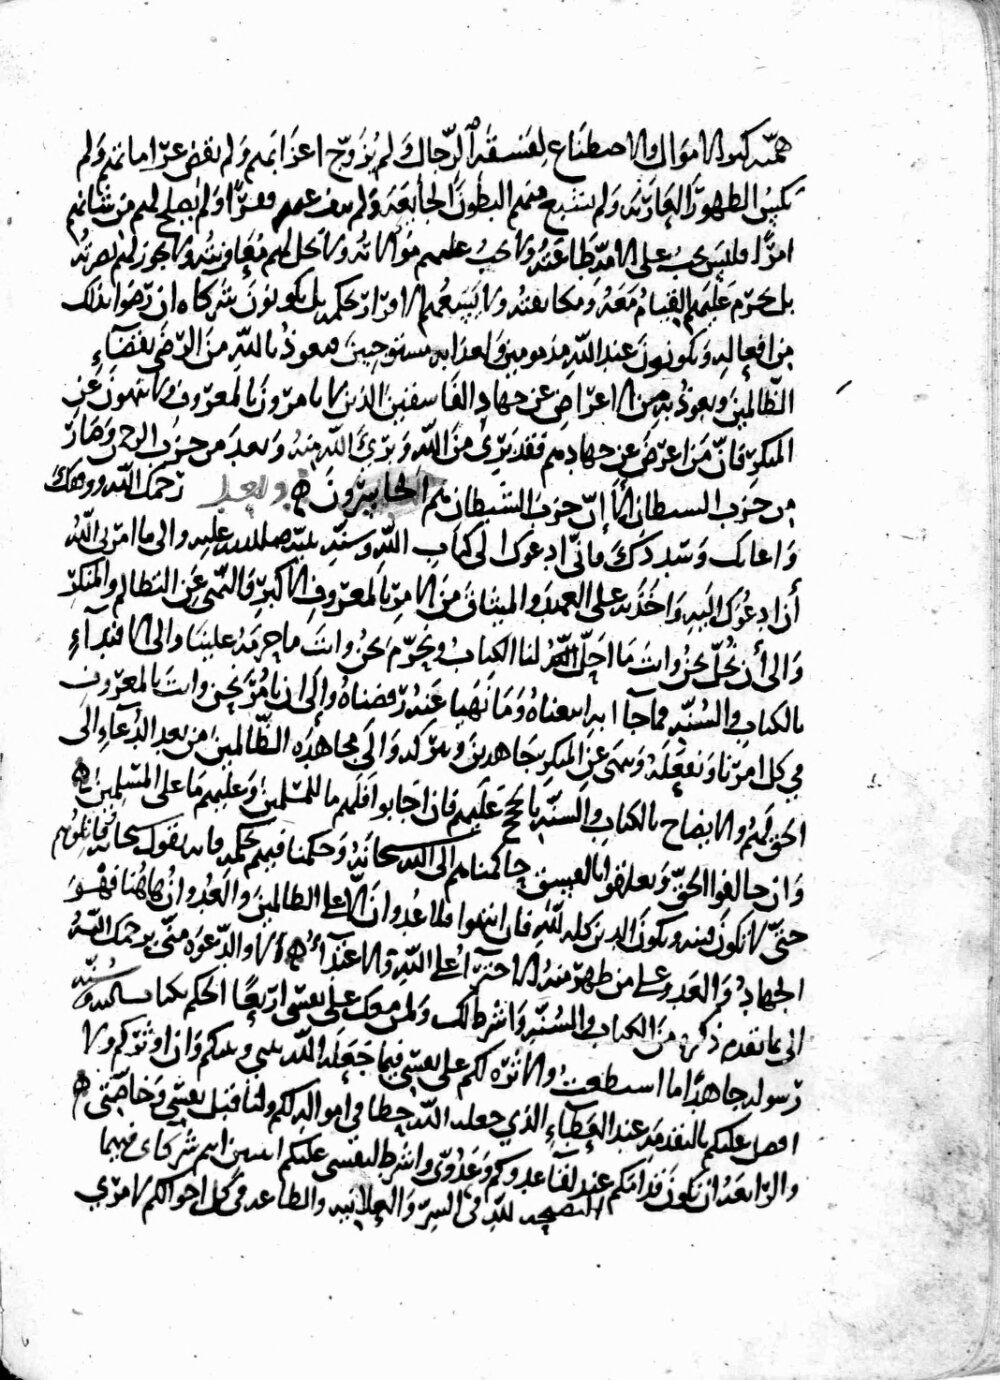 همته كنوز الاموال والاصطناع لفسقة الرجال ولم يزوج اعزابهم ولم يقض غراماتهم ولم
يكس الظهور العارية ولم يشبع منهم البطون الجايعة ولم ينف عنهم فقرا ولم يصلح لهم من شانهم
امرا فليس يجب على الامة طاعته ولا يجب عليهم موالاته ولا يحل لهم معاونته ولا يجوز لهم نصرته
بل يحرم عليهم القيام معه ومكانفته ولا يسعهم الاقرار بحكمه بل يكونون شركاه ان رضوا بذلك
من افعاله ويكونون عند الله مذمومين ولعذابه مستوجبين فنعوذ بالله من الرضى بقضاء
الظالمين ونعوذ به من الاعراض عن جهاد الفاسقين الذين لا يامرون بالمعروف ولا ينهون عن
المنكر فان من اعرض عن جهادهم فقد بري من الله وبري الله منه وبعد من حزب الرحمن وصار
من حزب الشيطان الا ان حزب الشيطان هم الخاسرون وبعد رحمك الله ووفقك
واعانك وسددك فاني ادعوك الى كتاب الله وسنة نبيه صلى الله عليه والى ما امرني الله
أن ادعوك اليه واخذ به على العهد والميثاق من الامر بالمعروف الاكبر والنهي عن التظالم والمنكر
والى أن نحل نحن وانت ما احل الله لنا الكتاب ونحرم نحن وانت ما حرمه علينا والى الاقتداء
بالكتاب والسنة فما جاا به اتبعناه وما نهيا عنه رفضناه وإلى ان نامر نحن وانت بالمعروف
في كل امرنا ونفعله وننهى عن المنكر جاهدين ونتركه والى مجاهدة الظالمين من بعد الدعاء الى
الحق لهم والايضاح بالكتاب والسنة بالحجج عليهم فان اجابوا فلهم ما للمسلمين وعليهم ما على المسلمين
وان خالفوا الحق وتعلقوا بالفسق حاكمناهم الى الله سبحانه وحكمنا فيهم بحكمه فانه يقول سبحانه وقاتلوهم
حتى لا تكون فتنة ويكون الدين كله لله فان انتهوا فلا عدوان الا على الظالمين والعدوان هاهنا فهو
الجهاد والعدو على من ظهر منه الاجتراء على الله والاعتداء ألا والدعوة مني يرحمك الله
الى ما تقدم ذكره من الكتاب والسنة واشرط لك ولمن معك على نفسي اربعا الحكم بكتاب الله وسنة
رسوله جاهدا ما استطعت والاثرة لكم على نفسي فيما جعله الله بيني وبينكم وان اوثركم ولا
افضل عليكم بالتقدمة عند العطاء الذي جعله الله حظا في امواله لكم ولنا قبل نفسي وخاصتي
والرابعة ان نكون قدامكم عند لقا عدوكم وعدوي واشرط لنفسي عليكم اثنتين انتم شركاي فيهما
النصيحة لله في السر والعلانية والطاعة في كل احوالكم لامري